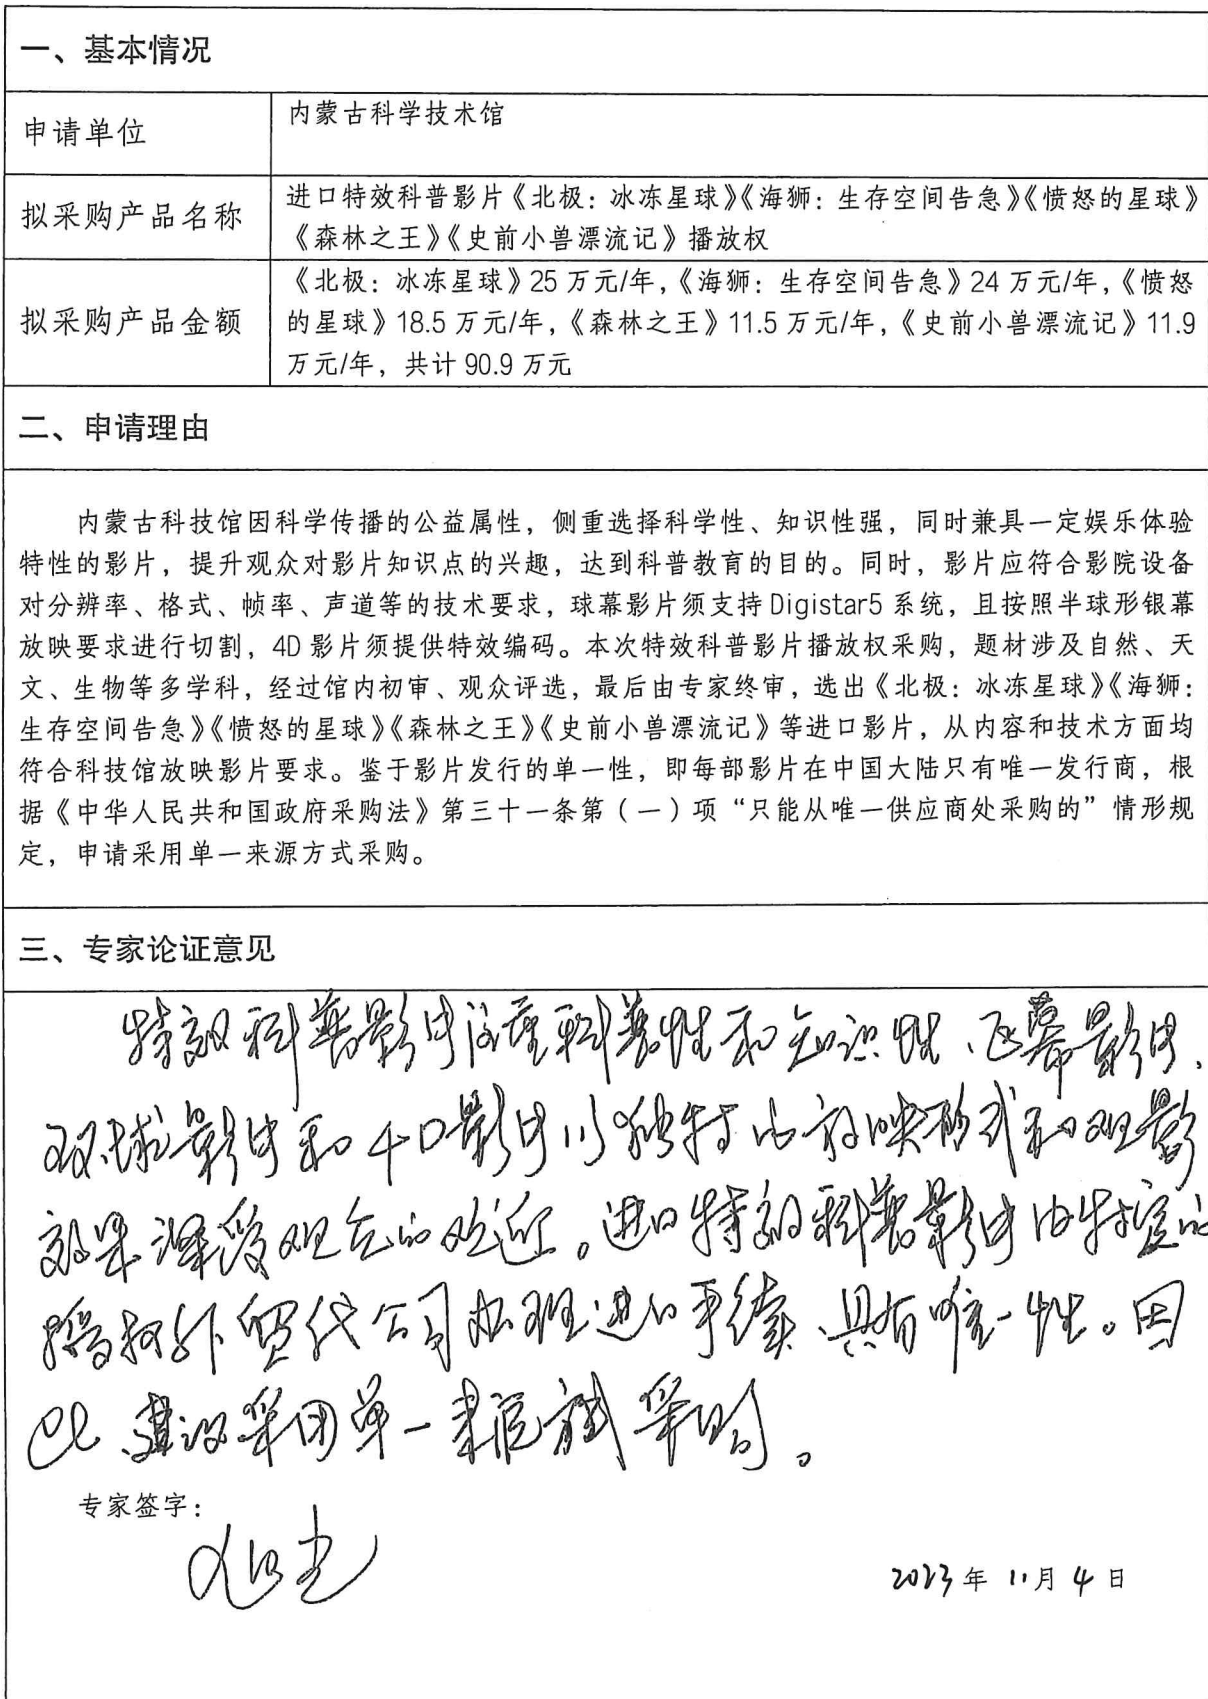 一、基本情况
申请单位
内蒙古科学技术馆
拟采购产品名称
进口特效科普影片《北极：冰冻星球》《海狮：生存空间告急》《愤怒的星球》
《森林之王》《史前小兽漂流记》播放权
拟采购产品金额
《北极：冰冻星球》25 万元/年，《海狮：生存空间告急》24 万元/年，《愤怒
的星球》18.5 万元/年，《森林之王》11.5 万元/年，《史前小兽漂流记》11.9
万元/年，共计 90.9 万元
二、申请理由
内蒙古科技馆因科学传播的公益属性，侧重选择科学性、知识性强，同时兼具一定娱乐体验
特性的影片，提升观众对影片知识点的兴趣，达到科普教育的目的。同时，影片应符合影院设备
对分辨率、格式、帧率、声道等的技术要求，球幕影片须支持 Digistar5 系统，且按照半球形银幕
放映要求进行切割，4D 影片须提供特效编码。本次特效科普影片播放权采购，题材涉及自然、天
文、生物等多学科，经过馆内初审、观众评选，最后由专家终审，选出《北极：冰冻星球》《海狮：
生存空间告急》《愤怒的星球》《森林之王》《史前小兽漂流记》等进口影片，从内容和技术方面均
符合科技馆放映影片要求。鉴于影片发行的单一性，即每部影片在中国大陆只有唯一发行商，根
据《中华人民共和国政府采购法》第三十一条第（一）项“只能从唯一供应商处采购的”情形规
定，申请采用单一来源方式采购。
三、专家论证意见
特效科普影片注重科普性和知识性、巨幕影片、
球影片和4D影片以独特的放映形式和观影
效果深受观众的欢迎。进口特效科普影片由特定的
授权外贸代公司办理进口手续、具有唯一性。因
此、建议采用单一来源方式采购。
专家签字：
2023年 11月 4日